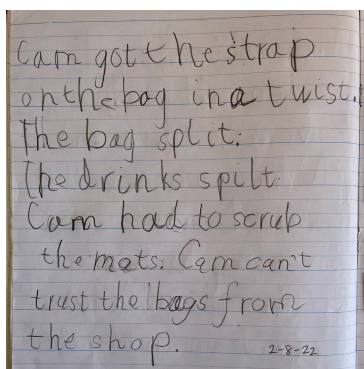 Cam got the strap
on the bag in a twist.
The bag split.
The drinks spilt.
Cam had to scrub
the mats. Cam can't
trust the bags from
the shop.
2-8-22